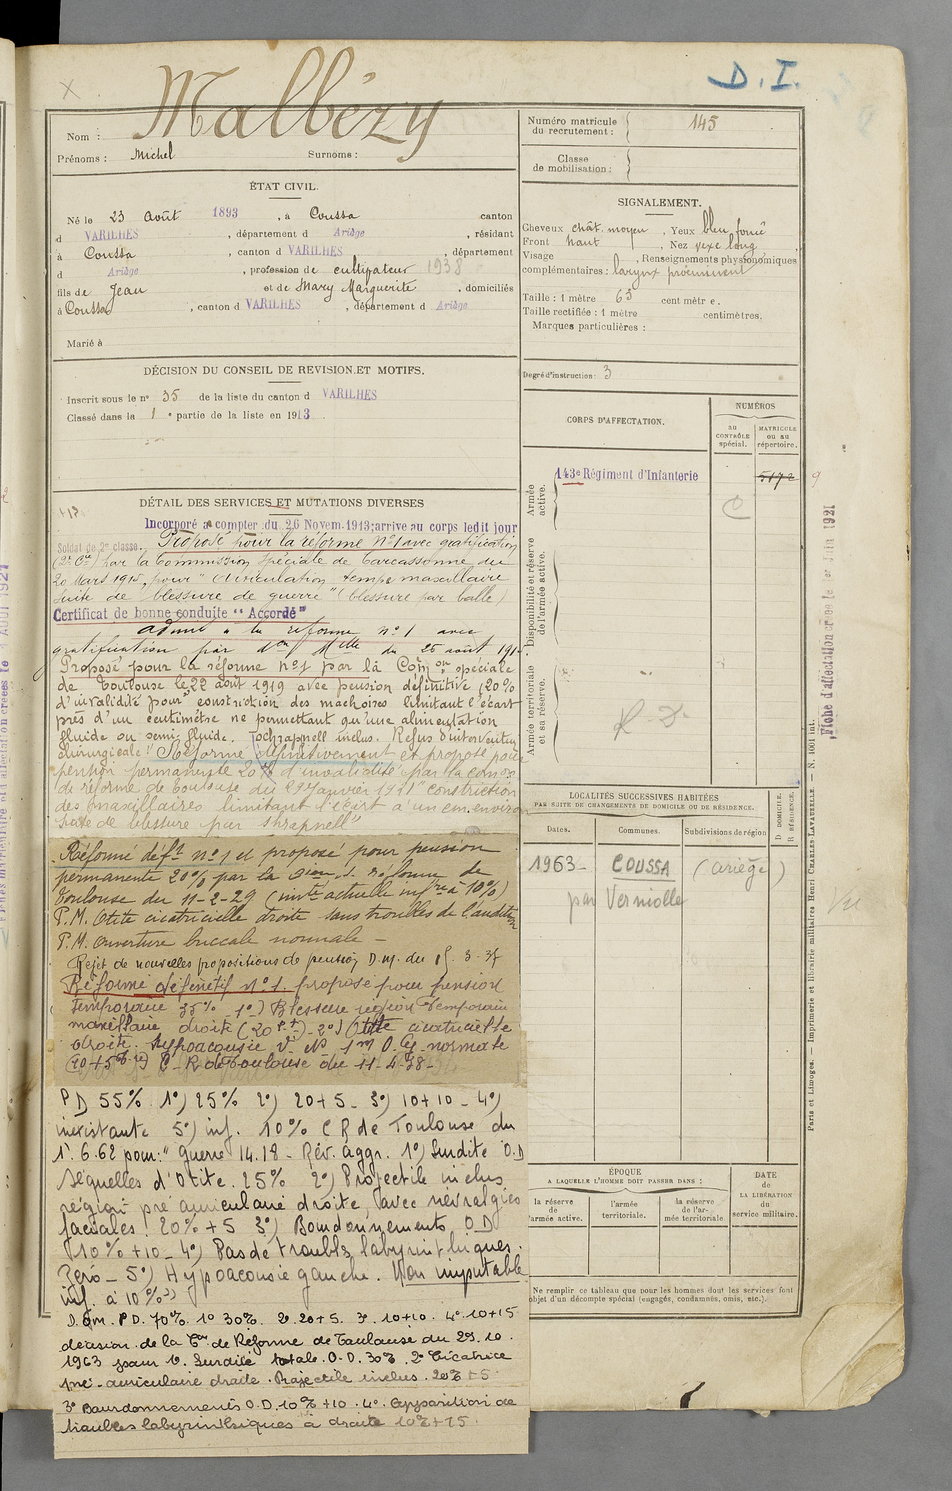 D. I.
Malbézy
Nom :
Prénoms : Michel Surnoms :
Numéro matricule du recrutement : 145
Classe de mobilisation :
ÉTAT CIVIL.
Né le 23 Août 1893, à Coussa canton
d VARILHES, département d Ariège, résidant
à Coussa, canton d VARILHES, département
d Ariège, profession de cultivateur 1938
fils de Jean et de Mary Marguerite, domiciliés
à Coussa, canton d VARILHES, département d Ariège
Marié à
SIGNALEMENT.
Cheveux chât. moyen, Yeux bleu foncé
Front haut, Nez vexe long,
Visage , Renseignements physionomiques
complémentaires : larynx proéminent
Taille : 1 mètre 65 centimètre.
Taille rectifiée : 1 mètre centimètres.
Marques particulières :
Degré d'instruction : 3
DÉCISION DU CONSEIL DE REVISION ET MOTIFS.
Inscrit sous le n° 35 de la liste du canton d VARILHES
Classé dans la 1e partie de la liste en 1913.
CORPS D'AFFECTATION.
NUMÉROS
au CONTRÔLE spécial.
MATRICULE ou au répertoire.
Armée active.
143e Régiment d'Infanterie
5172
Disponibilité et réserve de l'armée active.
Armée territoriale et sa réserve.
DÉTAIL DES SERVICES ET MUTATIONS DIVERSES
Incorporé à compter du 26 Novem. 1913; arrivé au corps ledit jour
Soldat de 2e classe. Proposé pour la réforme N°1 avec gratification
(2e Cie) par la Commission spéciale de Carcassonne du
20 Mars 1915, pour " Articulation temporo maxillaire
suite de blessure de guerre " (blessure par balle)
Certificat de bonne conduite " Accordé "
admis à la réforme n° 1 avec
gratification par don Mlle du 25 août 191
Proposé pour la réforme n°1 par la Con spéciale
de Toulouse le 22 août 1919 avec pension définitive (20%
d'invalidité pour constriction des machoires limitant l'écart
près d'un centimètre ne permettant qu'une alimentation
fluide ou semi-fluide. Schrapnell inclus. Refus d'intervention
chirurgicale. Réformé définitivement et proposé pour
pension permanente 20% d'invalidité par la conon
de réforme de Toulouse du 29 Janvier 1921 " constriction
des maxillaires limitant l'écart à un cm. environ
suite de blessure par shrapnell "
Réformé déft n°1 et proposé pour pension
permanente 20% par la Con. d. réforme de
Toulouse du 11-2-29 (invté actuelle infre à 10%)
P.M. Otite cicatricielle droite sans troubles de l'audition
P.M. ouverture buccale normale -
Rejet de nouvelles propositions de pension D.M. du
Réformé définitif N° 1. proposé pour pension
temporaire 35% 1°) Blessure région Temporo
maxillaire droite (20 p.%) - 2°) Otite cicatricielle
droite. hypoacousie
(10+5) C. R de Toulouse du 11-4-38-
PD 55% 1°) 25% 2°) 20+5- 3°) 10+10- 4°)
inexistante 5°) inf. 10% C R de Toulouse du
1.6.62 pour: " Guerre 14.18 - Rév. Aggr. 1°) Surdité O.D
Séquelles d'Otite. 25% 2°) Projectile inclus
région pré auriculaire droite, avec névralgies
faciales. 20% +5 3°) Bourdonnements O.D
10% +10- 4°) Pas de troubles labyrinthiques.
Zéro - 5°) Hypoacousie gauche. Non imputable
inf. à 10% "
D. Om. P.D. 70% 1° 30% 2° 20+5. 3° 10+10. 4° 10+15
décision de la Con de Réforme de Toulouse du 29.10.
1963 pour 1° Surdité totale. O.D. 30% 2° Cicatrice
pré-auriculaire droite. Projectile inclus. 20% +5
3° Bourdonnements O.D. 10% +10. 4° Apparition de
troubles labyrinthiques à droite 10%+15.
LOCALITÉS SUCCESSIVES HABITÉES
PAR SUITE DE CHANGEMENTS DE DOMICILE OU DE RÉSIDENCE.
Dates. Communes. Subdivisions de région
D. DOMICILE. R. RÉSIDENCE.
1963- COUSSA (Ariège)
par Verniolle
ÉPOQUE
A LAQUELLE L'HOMME DOIT PASSER DANS :
la réserve de l'armée active.
l'armée territoriale.
la réserve de l'armée territoriale.
DATE de LA LIBÉRATION du service militaire.
Ne remplir ce tableau que pour les hommes dont les services font
objet d'un décompte spécial (engagés, condamnés, omis, etc.).
Fiche d'affectation créée le 1er Juin 1921
Paris et Limoges. — Imprimerie et librairie militaires Henri CHARLES-LAVAUZELLE.